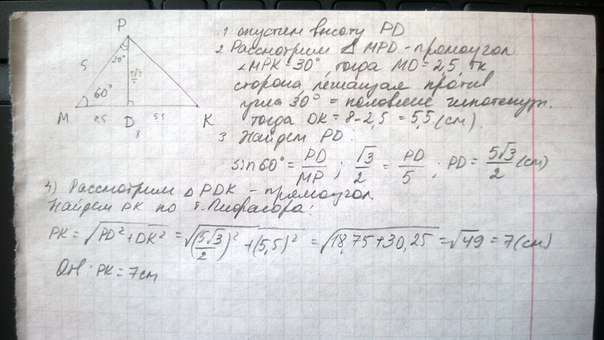 P
5
30°
5√3/2
60°
M 2,5 D 5,5 K
8
1 опустим высоту PD
2 Рассмотрим △ MPD - прямоугол.
∠MPK = 30°, тогда MD = 2,5, тк
сторона лежащая против
угла 30° = половине гипотенузы.
тогда DK = 8 - 2,5 = 5,5 (см)
3 Найдем PD:
sin 60° = PD/MP ; √3/2 = PD/5 ; PD = 5√3/2 (см)
4) Рассмотрим △ PDK - прямоугол.
Найдем PK по т. Пифагора:
PK = √(PD² + DK²) = √((5√3/2)² + (5,5)²) = √(18,75 + 30,25) = √49 = 7 (см)
Отв: PK = 7 см